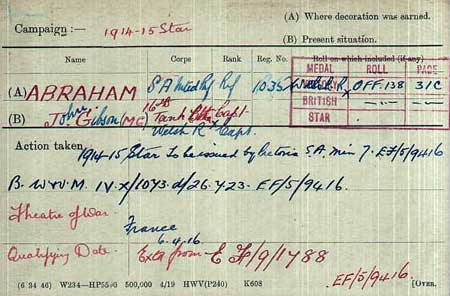 Campaign :— 1914-15 Star
(A) Where decoration was earned.
(B) Present situation.
Name Corps Rank Reg. No. Roll on which included (if any)
MEDAL ROLL PAGE
(A) ABRAHAM S A Rfl 1035 VICTORY OFF. 138 31C
BRITISH —"— —"—
(B) John Gibson (MC) 16th Tank Capt
STAR
Welch R Capt.
Action taken 1914-15 Star to be issued by S.A. Min 7. EF/5/9416
B. W & V. M. IV. X/1073. d/26. 423. EF/5/9416.
Theatre of War.
France
Qualifying Date. 6.4.16.
Extd from E F/9/1788
EF/5/9416.
(6 34 46) W234—HP5590 500,000 4/19 HWV(P240) K608 [OVER.